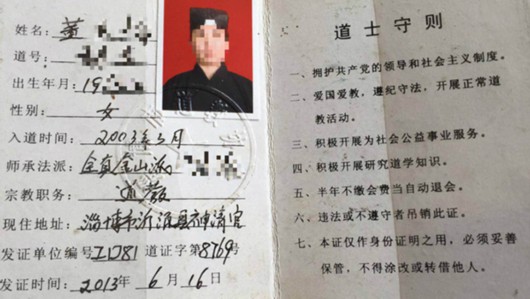 姓名：董
道号：
出生年月：19
性别：女
入道时间：2003年5月
师承法派：全真金山派
宗教职务：道教
现住地址：淄博市沂源县神清宫
发证单位编号 道证字第8769号
发证时间：2013年6月16日
道士守则
一、拥护共产党的领导和社会主义制度。
二、爱国爱教，遵纪守法，开展正常道
教活动。
三、积极开展为社会公益事业服务。
四、积极开展研究道学知识。
五、半年不缴会费当自动退会。
六、违法或不遵守者吊销此证。
七、本证仅作身份证明之用，必须妥善
保管，不得涂改或转借他人。